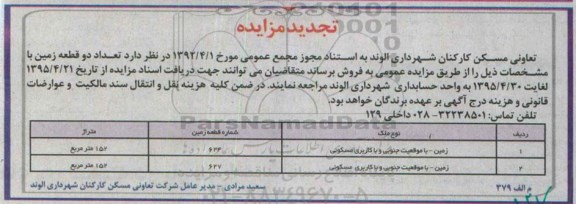 تجدید مزایده
تعاونی مسکن کارکنان شهرداری الوند به استناد مجوز مجمع عمومی مورخ ۱۳۹۲/۴/۱ در نظر دارد تعداد دو قطعه زمین با
مشخصات ذیل را از طریق مزایده عمومی به فروش برساند متقاضیان می توانند جهت دریافت اسناد مزایده از تاریخ ۱۳۹۵/۴/۲۱
لغایت ۱۳۹۵/۴/۳۰ به واحد حسابداری شهرداری الوند مراجعه نمایند. در ضمن کلیه هزینه نقل و انتقال سند مالکیت و عوارضات
قانونی و هزینه درج آگهی بر عهده برندگان خواهد بود.
تلفن تماس: ۳۲۲۳۸۵۰۱-۰۲۸ داخلی ۱۲۹
ردیف نوع ملک شماره قطعه زمین متراژ
۱ زمین - با موقعیت جنوبی و با کاربری مسکونی ۶۲۳ ۱۵۶ متر مربع
۲ زمین - با موقعیت جنوبی و با کاربری مسکونی ۶۲۷ ۱۵۶ متر مربع
م الف ۳۷۹ سعید مرادی - مدیر عامل شرکت تعاونی مسکن کارکنان شهرداری الوند
ParsNamadData